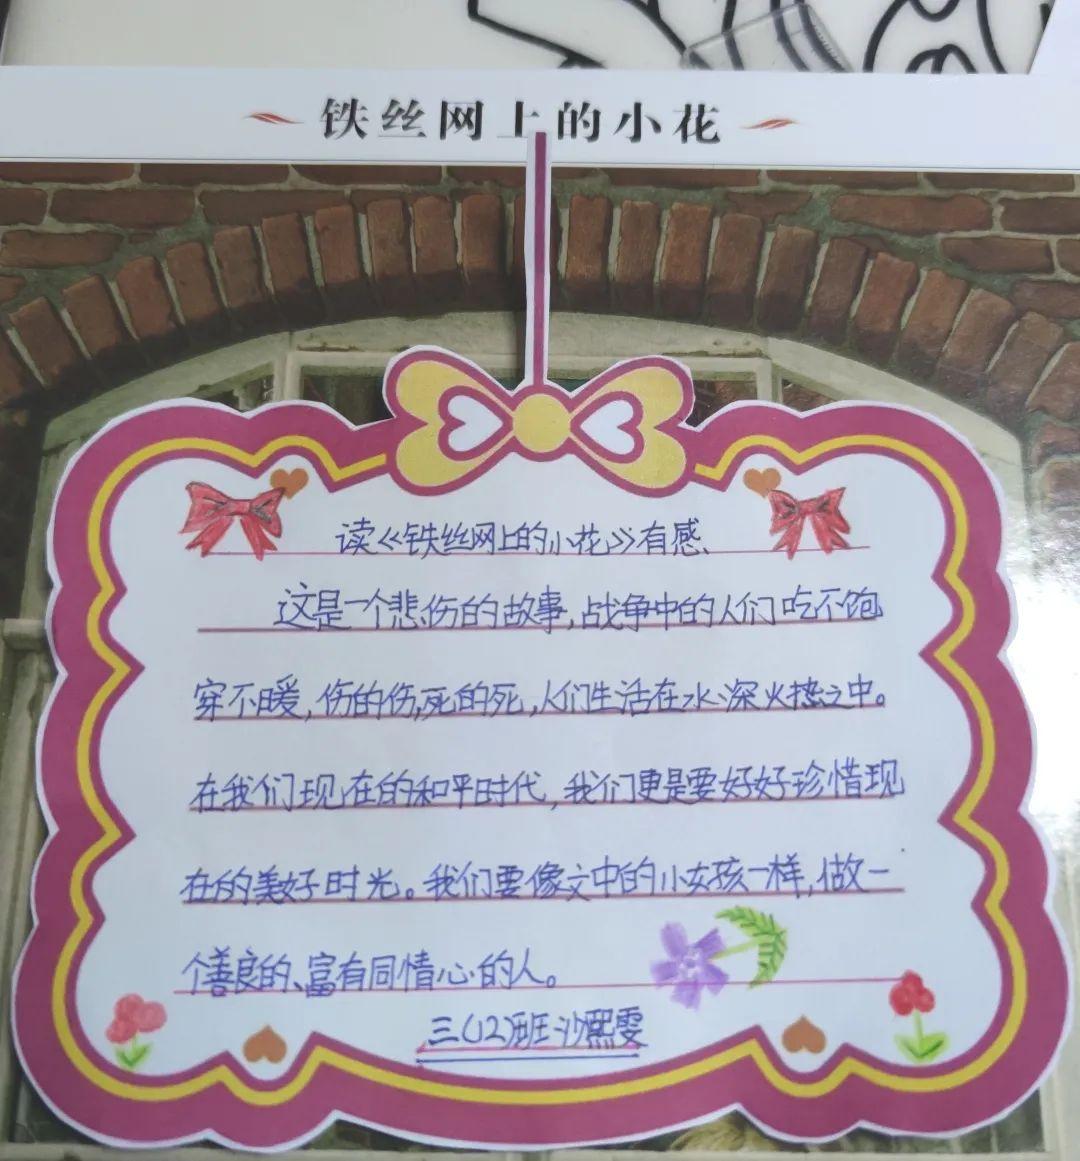 铁丝网上的小花
读《铁丝网上的小花》有感
这是一个悲伤的故事,战争中的人们吃不饱
穿不暖,伤的伤,死的死,人们生活在水深火热之中。
在我们现在的和平时代,我们更是要好好珍惜现
在的美好时光。我们要像文中的小女孩一样,做一
个善良的、富有同情心的人。
三(12)班沙熙雯